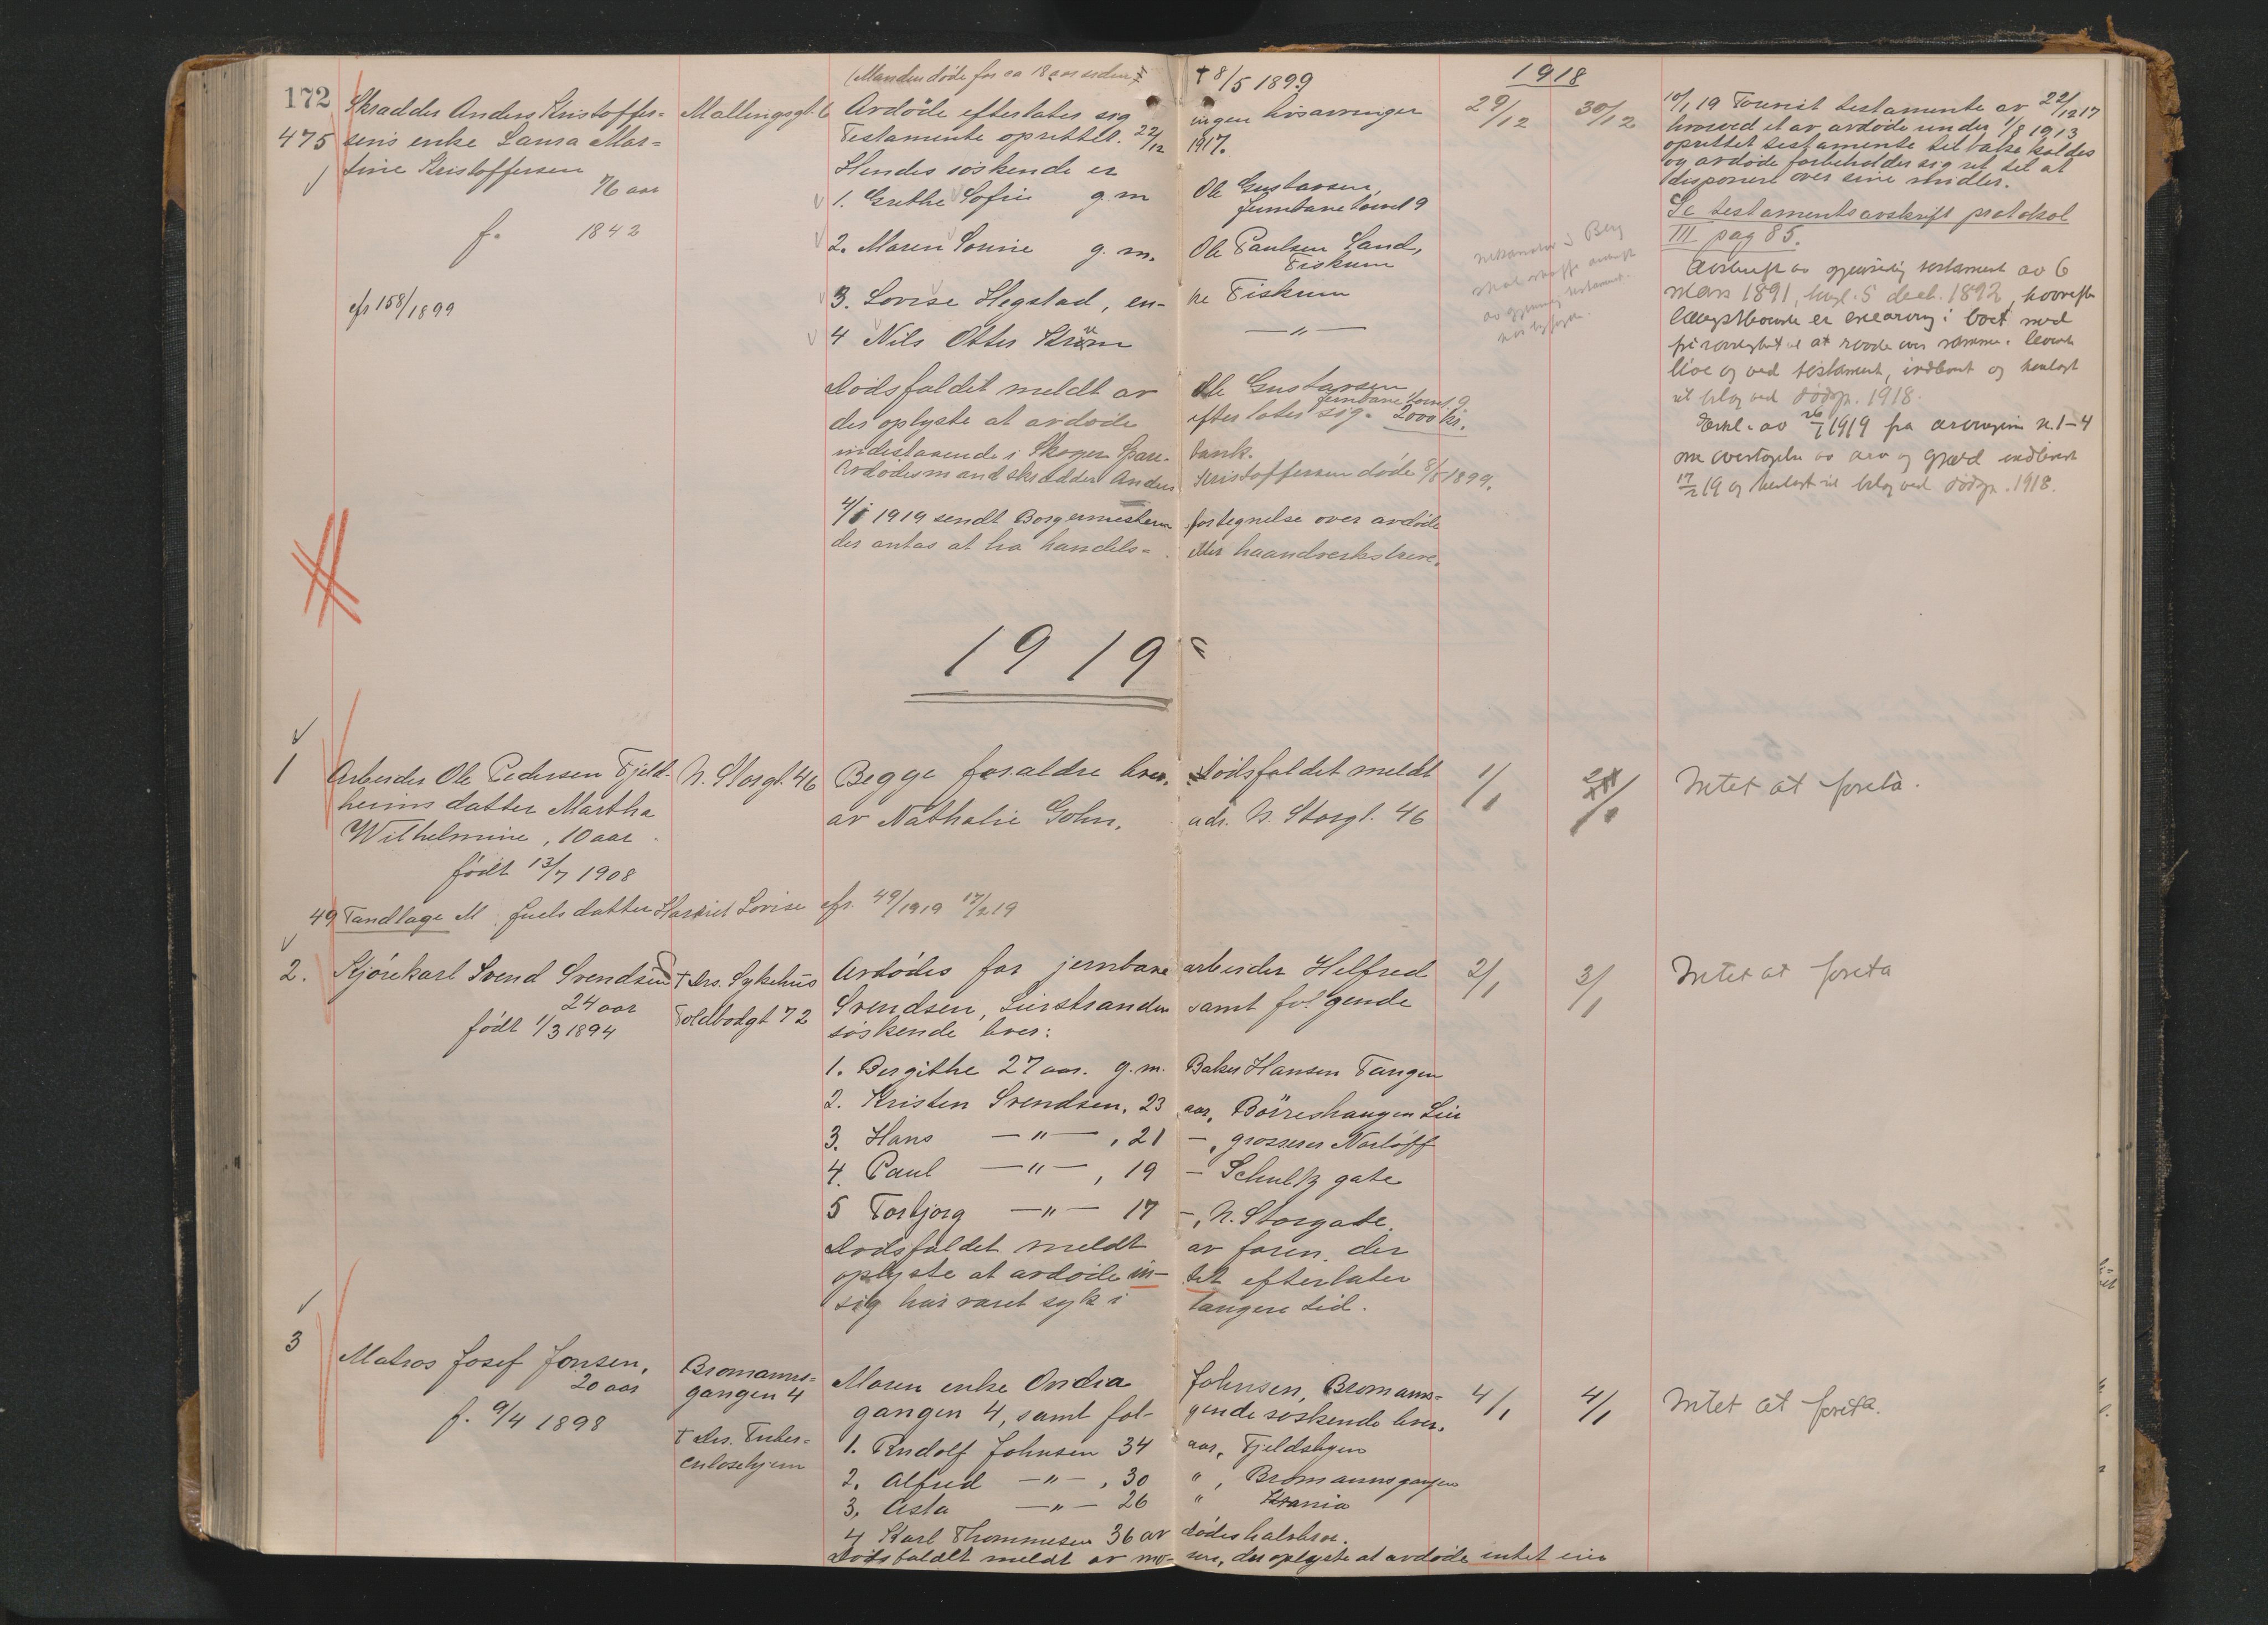 172
1918
(Manden døde for ca 18 aar siden) † 8/5 1899
475 Skrædder Anders Kristoffer=
sens enke Laura Mar=
tine Kristoffersen
76 aar
f. 1842
cfr 158/1899
Mallingsgt. 6
Avdøde efterlater sig ingen livsarvinger
Testamente oprettet 22/12 1917.
Hendes søskende er
1. Grethe Sofie g. m Ole Gustavsen,
Jernbanetorvet 9
2. Maren Lovise g. m. Ole Paulsen Sand,
Fiskum
3. Lovise Hegstad, en- ke Fiskum
4 Nils Otter Strøm — " —
Dødsfaldet meldt av Ole Gustavsen
Jernbanetorvet 9
der oplyste at avdøde efterlater sig 2000 kr.
indestaaende i Skoger Spare- bank.
Avdødes mand skrædder Anders Kristoffersen døde 8/5 1899.
4/1 1919 sendt Borgermesteren fortegnelse over avdøde
der antas at ha handels= eller haandverksbrev.
29/12
30/12
Berg
skal skaffe
10/1 19 Tourist testamente av 22/12 17
hvorved et av avdøde under 1/8 1913
oprettet testamente tilbake kaldes
og avdøde forbeholder sig ret til at
disponere over sine midler.
Se testamentsavskrift protokol
III pag 85.
Avskrift av gjensidig testament av 6
mars 1891, 5 decb. 1892, hvorefter
længstlevende er enearving i boet med
at raade over samme i levende
live og ved testament, indlevert og henlagt
til bilag ved dødspr. 1918.
Erkl. av 26/1 1919 fra arvingene n. 1-4
om overtagelse av arv og gjæld indlevert
17/2 19 og henlagt til bilag ved dødspr. 1918.
1919
1 Arbeider Ole Pedersen Fjeld-
heims datter Martha
Wilhelmine, 10 aar
født 13/7 1908
N. Storgt. 46
Begge forældre lever. Dødsfaldet meldt
av Nathalie Gohn, adr. N. Storgt. 46
1/1
2/1
Intet at foreta.
49 Tandlæge M. Juels datter Harriet Lovise cfr. 49/1919 17/2 19
2. Kjørekarl Svend Svendsen
24 aar
født 1/3 1894
† Drs. Sykehus
Toldbodgt 72
Avdødes far jernbane arbeider Helfred
Svendsen, Lierstranden samt følgende
søskende lever:
1. Bergithe 27 aar. g. m. Baker Hansen Tangen
2. Kristen Svendsen, 23 aar, Børreshaugen Lier
3. Hans — " —, 21 —, grosserer Narløff
4. Paul — " —, 19 — Schultz gate
5 Torbjørg — " — 17 —, N. Storgate.
Dødsfaldet meldt av faren der
oplyste at avdøde in- tet efterlater
sig har været syk i længere tid.
2/1
3/1
Intet at foreta
3 Matros Josef Jonsen,
20 aar
f. 9/4 1898
Bromanns=
gangen 4
† Drs. Tuber=
culosehjem
Moren enke Andrea Johnsen, Bromanns=
gangen 4, samt føl- gende søskende lever.
1. Rudolf Johnsen 34 aar, Fjeldsbyen
2. Alfred — " —, 30 ", Bromannsgangen
3. Asta — " — 26 " Krania
4 Karl Thommesen 36 av dødes halvbror.
Dødsfaldet meldt av mo- ren, der oplyste at avdøde intet eier
4/1
4/1
Intet at foreta.